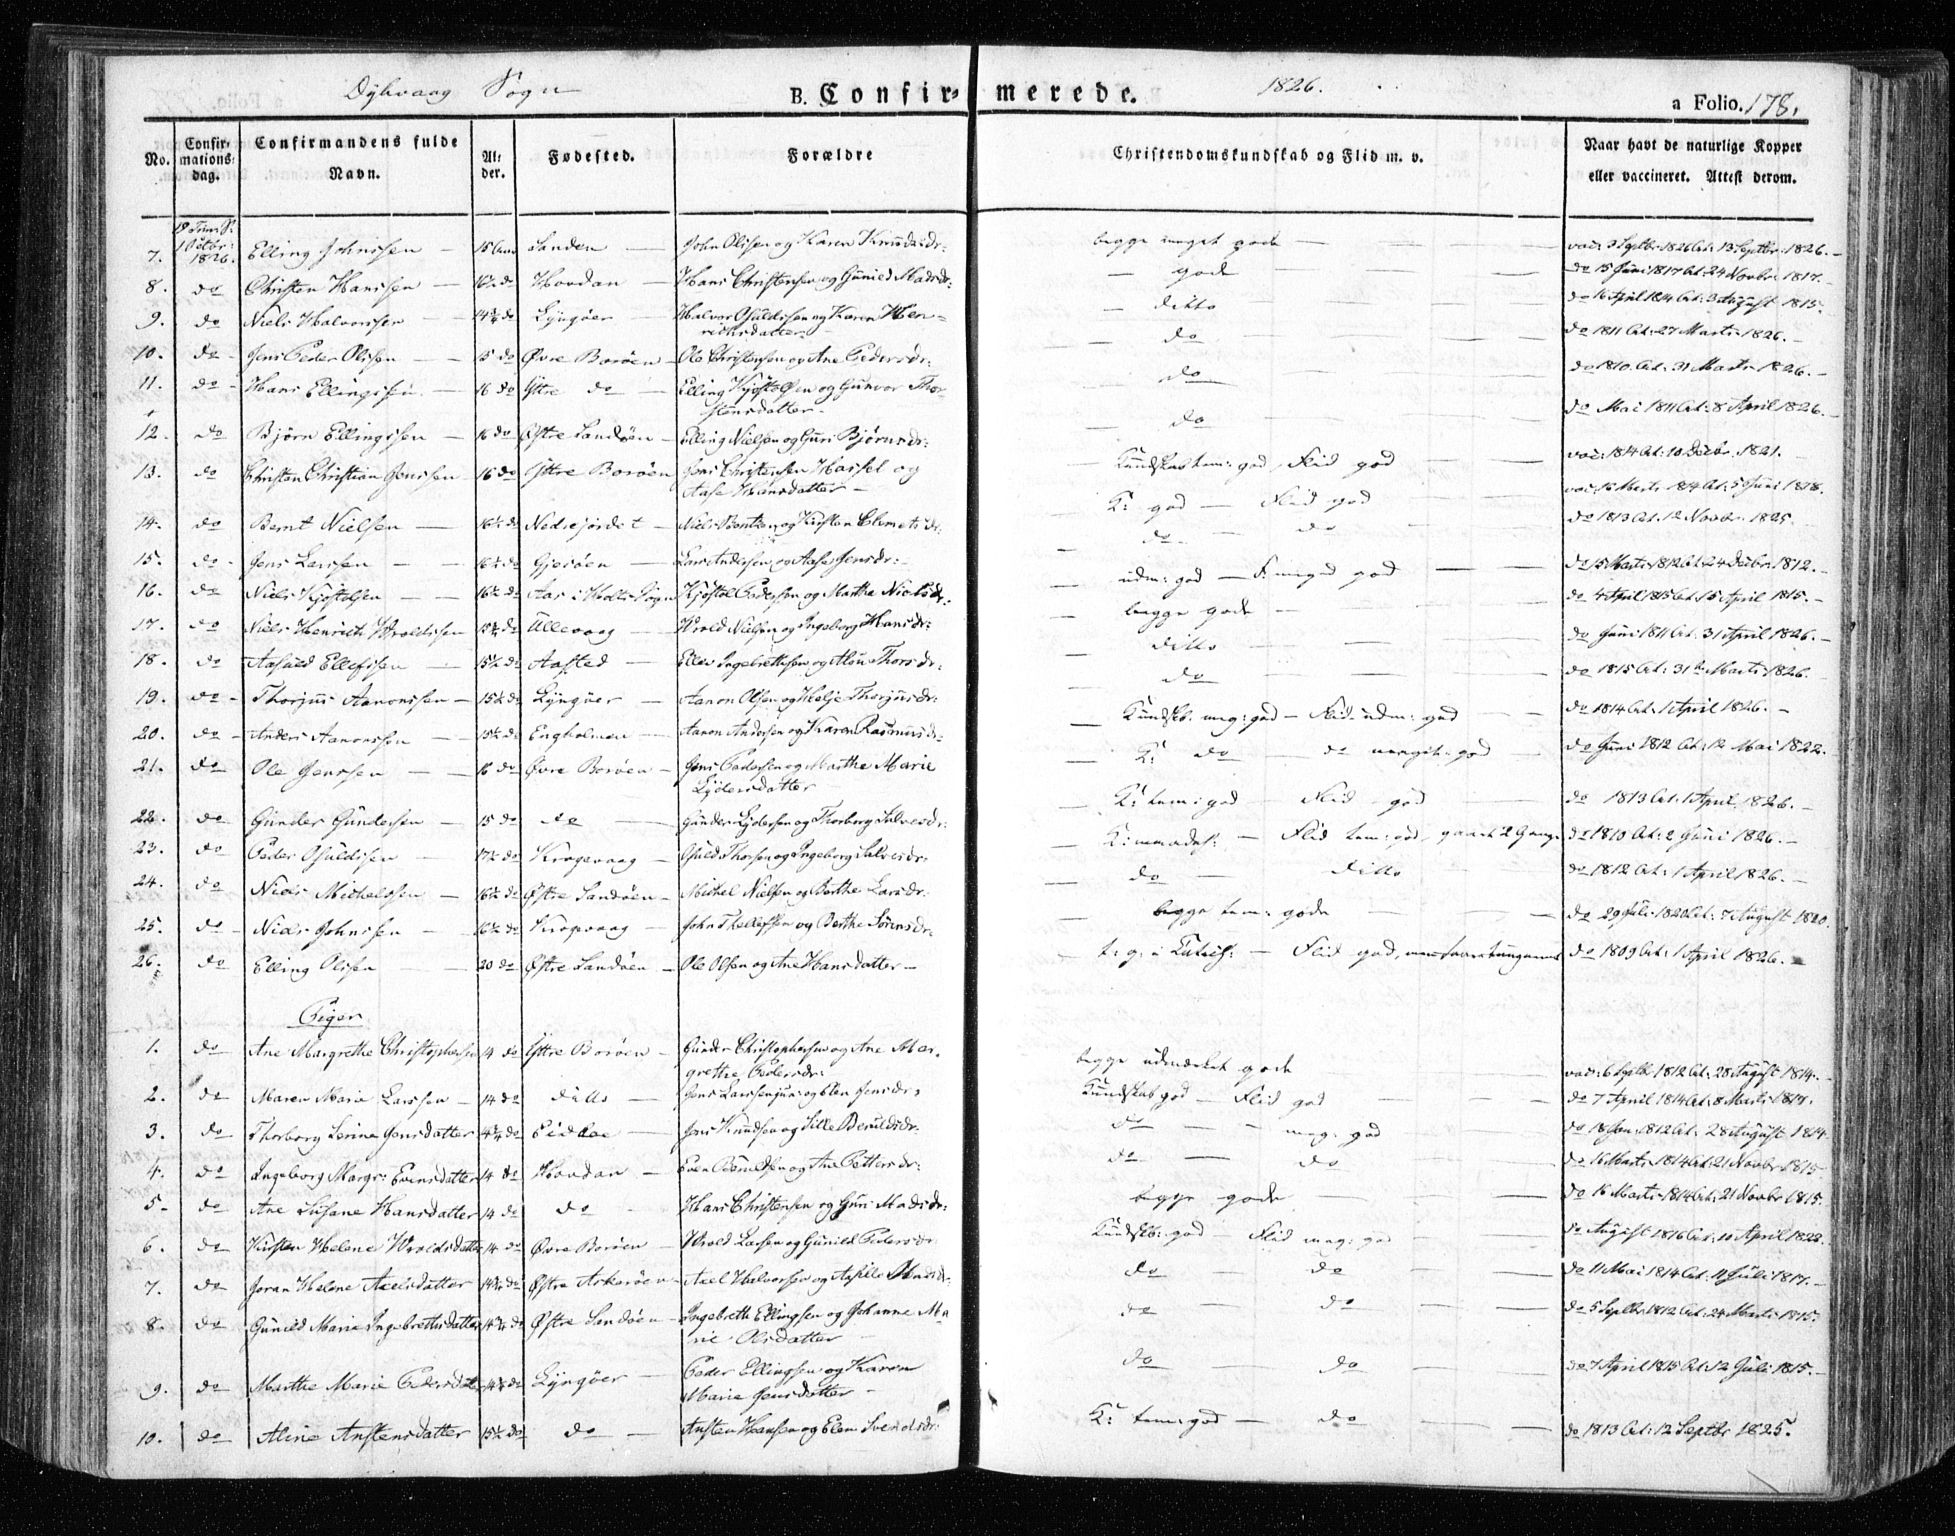 Dybvaag Sogn B. Confir- merede. 1826. a Folio. 178.
No. Confir- mations- dag. Confirmandens fulde Navn. Al- der. Fødested. Forældre Christendomskundskab og Flid m. v. Naar havt de naturlige Kopper eller vaccineret. Attest derom.
7. 1 Octbr: 1826. Elling Johnssen 15 Sanden John Olssen og Karen Knudsdr: begge meget gode vac: 3 Septbr 1826 At: 13 Septbr. 1826.
8. do Christen Hanssen 16½ do Hovdan Hans Christensen og Gunild Madsdr: gode do 15 Juni 1817 At: 24 Novbr 1817.
9. do Niels Halvorssen 14¾ do Lyngöer Halvor Osuldssen og Karen Hen-
richsdatter ditto do 16 April 1814 At: 3 August 1815.
10. do Jens Peder Olssen 15 do Øvre Boröen Ole Christensen og Ane Pedersdr: do do 1811 At: 27 Marts 1826.
11. do Hans Ellingssen 16 do Yttre do Elling Kjöstolsen og Gunvor Thor-
stensdatter do do 1810. At: 31 Marts 1826.
12. do Björn Ellingssen 16 do Østre Sandöen Elling Nielsen og Guri Björnsdr: do do Mai 1811 At: 8 April 1826.
13. do Christen Christian Jenssen 16 do Yttre Boröen Jens Christensen Hassel og
Aase Hansdatter Kundskab tem: god, Flid god vac: 1814 At: 10 Decbr. 1821.
14. do Bernt Nielsen 16½ do Nedrejordet Niels Bentzen og Kirsten Clemetsdr: K: god Flid god vac: 16 Marts 1814 At: 5 Juni 1818.
15. do Jens Larssen 16½ do Gjeröen Lars Andersen og Aase Jensdr: do do do 1813 At: 12 Novbr. 1825.
16. do Niels Kjöstelsen 16½ do Aas i Holts Sogn Kjöstol Pedersen og Marthe Nielsdr: udm: god F: meget god do 15 Marts 1812 At: 24 Decbr: 1812.
17. do Niels Henrich Wroldssen 15¾ do Ullevaag Wrold Nielsen og Ingeborg Hansdr: begge gode do 4 April 1815 At: 15 April 1815.
18. do Aasuld Ellefssen 15½ do Aasted Ellev Ingebrethsen og Thorsdr: ditto do Juni 1811 At: 31 April 1826.
19. do Thorjus Aanonssen 15½ do Lyngöer Aanon Olsen og Helje Thorjusdr: do do 1815 At: 31 Marts 1826.
20. do Anders Aanonssen 15½ do Engholmen Aanon Andersen og Karen Rasmusdr: Kundskb. meg: god Flid udm: god do 1814 At: 1 April 1826.
21. do Ole Jenssen 16 do Øvre Boröen Jens Pedersen og Marthe Marie
Lydersdatter K: do do meget god do Juni 1812 At: 12 Mai 1822.
22. do Gunder Gundersen 15 do do Gunder Lydersen og Thorborg Salvesdr: K: tem: god Flid god do 1813 At: 1 April 1826.
23. do Peder Osuldssen 17½ do Kragevaag Osuld Thorsen og Ingeborg Salvesdr: K: maadel: Flid tem: god, 2 Gange do 1810 At: 2 Juni 1826.
24. do Niels Michelssen 16½ do Østre Sandöen Michel Nielsen og Berthe Larsdr: do ditto do 1812 At: 1 April 1826.
25. do Niels Johnssen 16½ do Kragvaag John Thellefsen og Berthe Sörensdr: begge tem: gode do 29 Juli 1820 At: 7 August 1820.
26. do Elling Olssen 20 do Østre Sandöen Ole Olsen og Ane Hansdatter t: g: i Katech: Flid god, do 1809 At: 1 April 1826.
Piger
1. do Ane Margrethe Christophersen 14 do Yttre Boröen Gunder Christophersen og Ane Mar-
grethe Pedersdr: begge udmærket gode vac: 6 Septbr 1812 At: 28 August 1814.
2. do Maren Marie Larssen 14 do ditto Jens Larssen jun: og Elen Jensdr: Kundskab god Flid god do 7 April 1814 At: 8 Marts 1819.
3. do Thorborg Serine Jensdatter 14¾ do Eidboe Jens Knudsen og Sille Beruldsdr: do meg: god do 18 Jan: 1812 At: 28 August 1814.
4. do Ingeborg Margr: Evensdatter 14 do Hovdan Even Beruldsen og Ane Pettersdr: do do do 16 Marts 1814 At: 21 Novbr 1815.
5. do Ane Susane Hansdatter 14 do do Hans Christensen og Guri Madsdr: begge gode do 16 Marts 1814 At: 21 Novbr 1815.
6. do Kirsten Helene Wroldsdatter 14 do Øvre Boröen Wrold Larsen og Gunild Pedersdr: Kundskb: god Flid meg: god do August 1816 At: 10 April 1822.
7. do Joran Helene Axelsdatter 14¾ do Østre Askeröen Axel Halvorsen og dr: do do do 11 Mai 1814 At: 11 Juli 1817.
8. do Gunild Marie Ingebrethsdatter 14¾ do Østre Sandöen Ingebreth Ellingsen og Johanne Ma-
rie Olsdatter do do do 5 Septbr 1812 At: 24 Marts 1815.
9. do Marthe Marie Pedersdatter 14¾ do Lyngöer Peder Ellingsen og Karen
Marie Jensdatter do do do 7 April 1815 At: 12 Juli 1815.
10. do Aline Anstensdatter 15½ do do Ansten Hansen og Elen Svendsdr: K: tem: god do do 1813 At: 12 Septbr 1825.